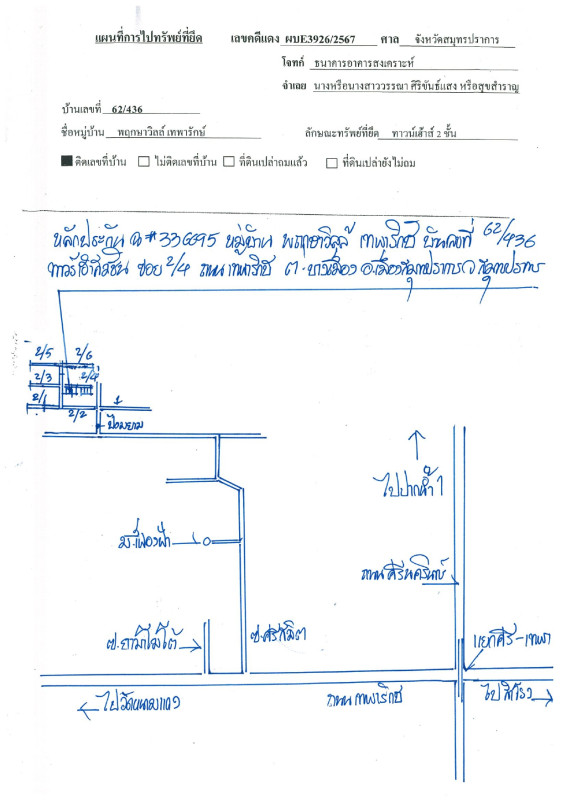 แผนที่การไปทรัพย์ที่ยึด เลขคดีแดง ผบE3926/2567 ศาล จังหวัดสมุทรปราการ
โจทก์ ธนาคารอาคารสงเคราะห์
จำเลย นางหรือนางสาววรรณา ศิริขันธ์แสง หรือสุขสำราญ
บ้านเลขที่ 62/436
ชื่อหมู่บ้าน พฤกษาวิลล์ เทพารักษ์ ลักษณะทรัพย์ที่ยึด ทาวน์เฮ้าส์ 2 ชั้น
ติดเลขที่บ้าน ไม่ติดเลขที่บ้าน ที่ดินเปล่าถมแล้ว ที่ดินเปล่ายังไม่ถม
หลักประกัน ฉ#336695 หมู่บ้าน พฤกษาวิลล์ เทพารักษ์ บ้านเลขที่ 62/436
ซอย 2/4 ถนนเทพารักษ์ ต.บางเมือง อ.เมืองสมุทรปราการ จ.สมุทรปราการ
2/5 2/6
2/3 2/4
2/1 2/2 1
ป้อมยาม
ไปปากน้ำ
ม.เฟื่องฟ้า
ถนนศรีนครินทร์
ซ.ยามาโมโต้ ซ.ศรีสมิต แยกศรี-เทพา
ไปวัดหนามแดง ถนนเทพารักษ์ ไปสำโรง